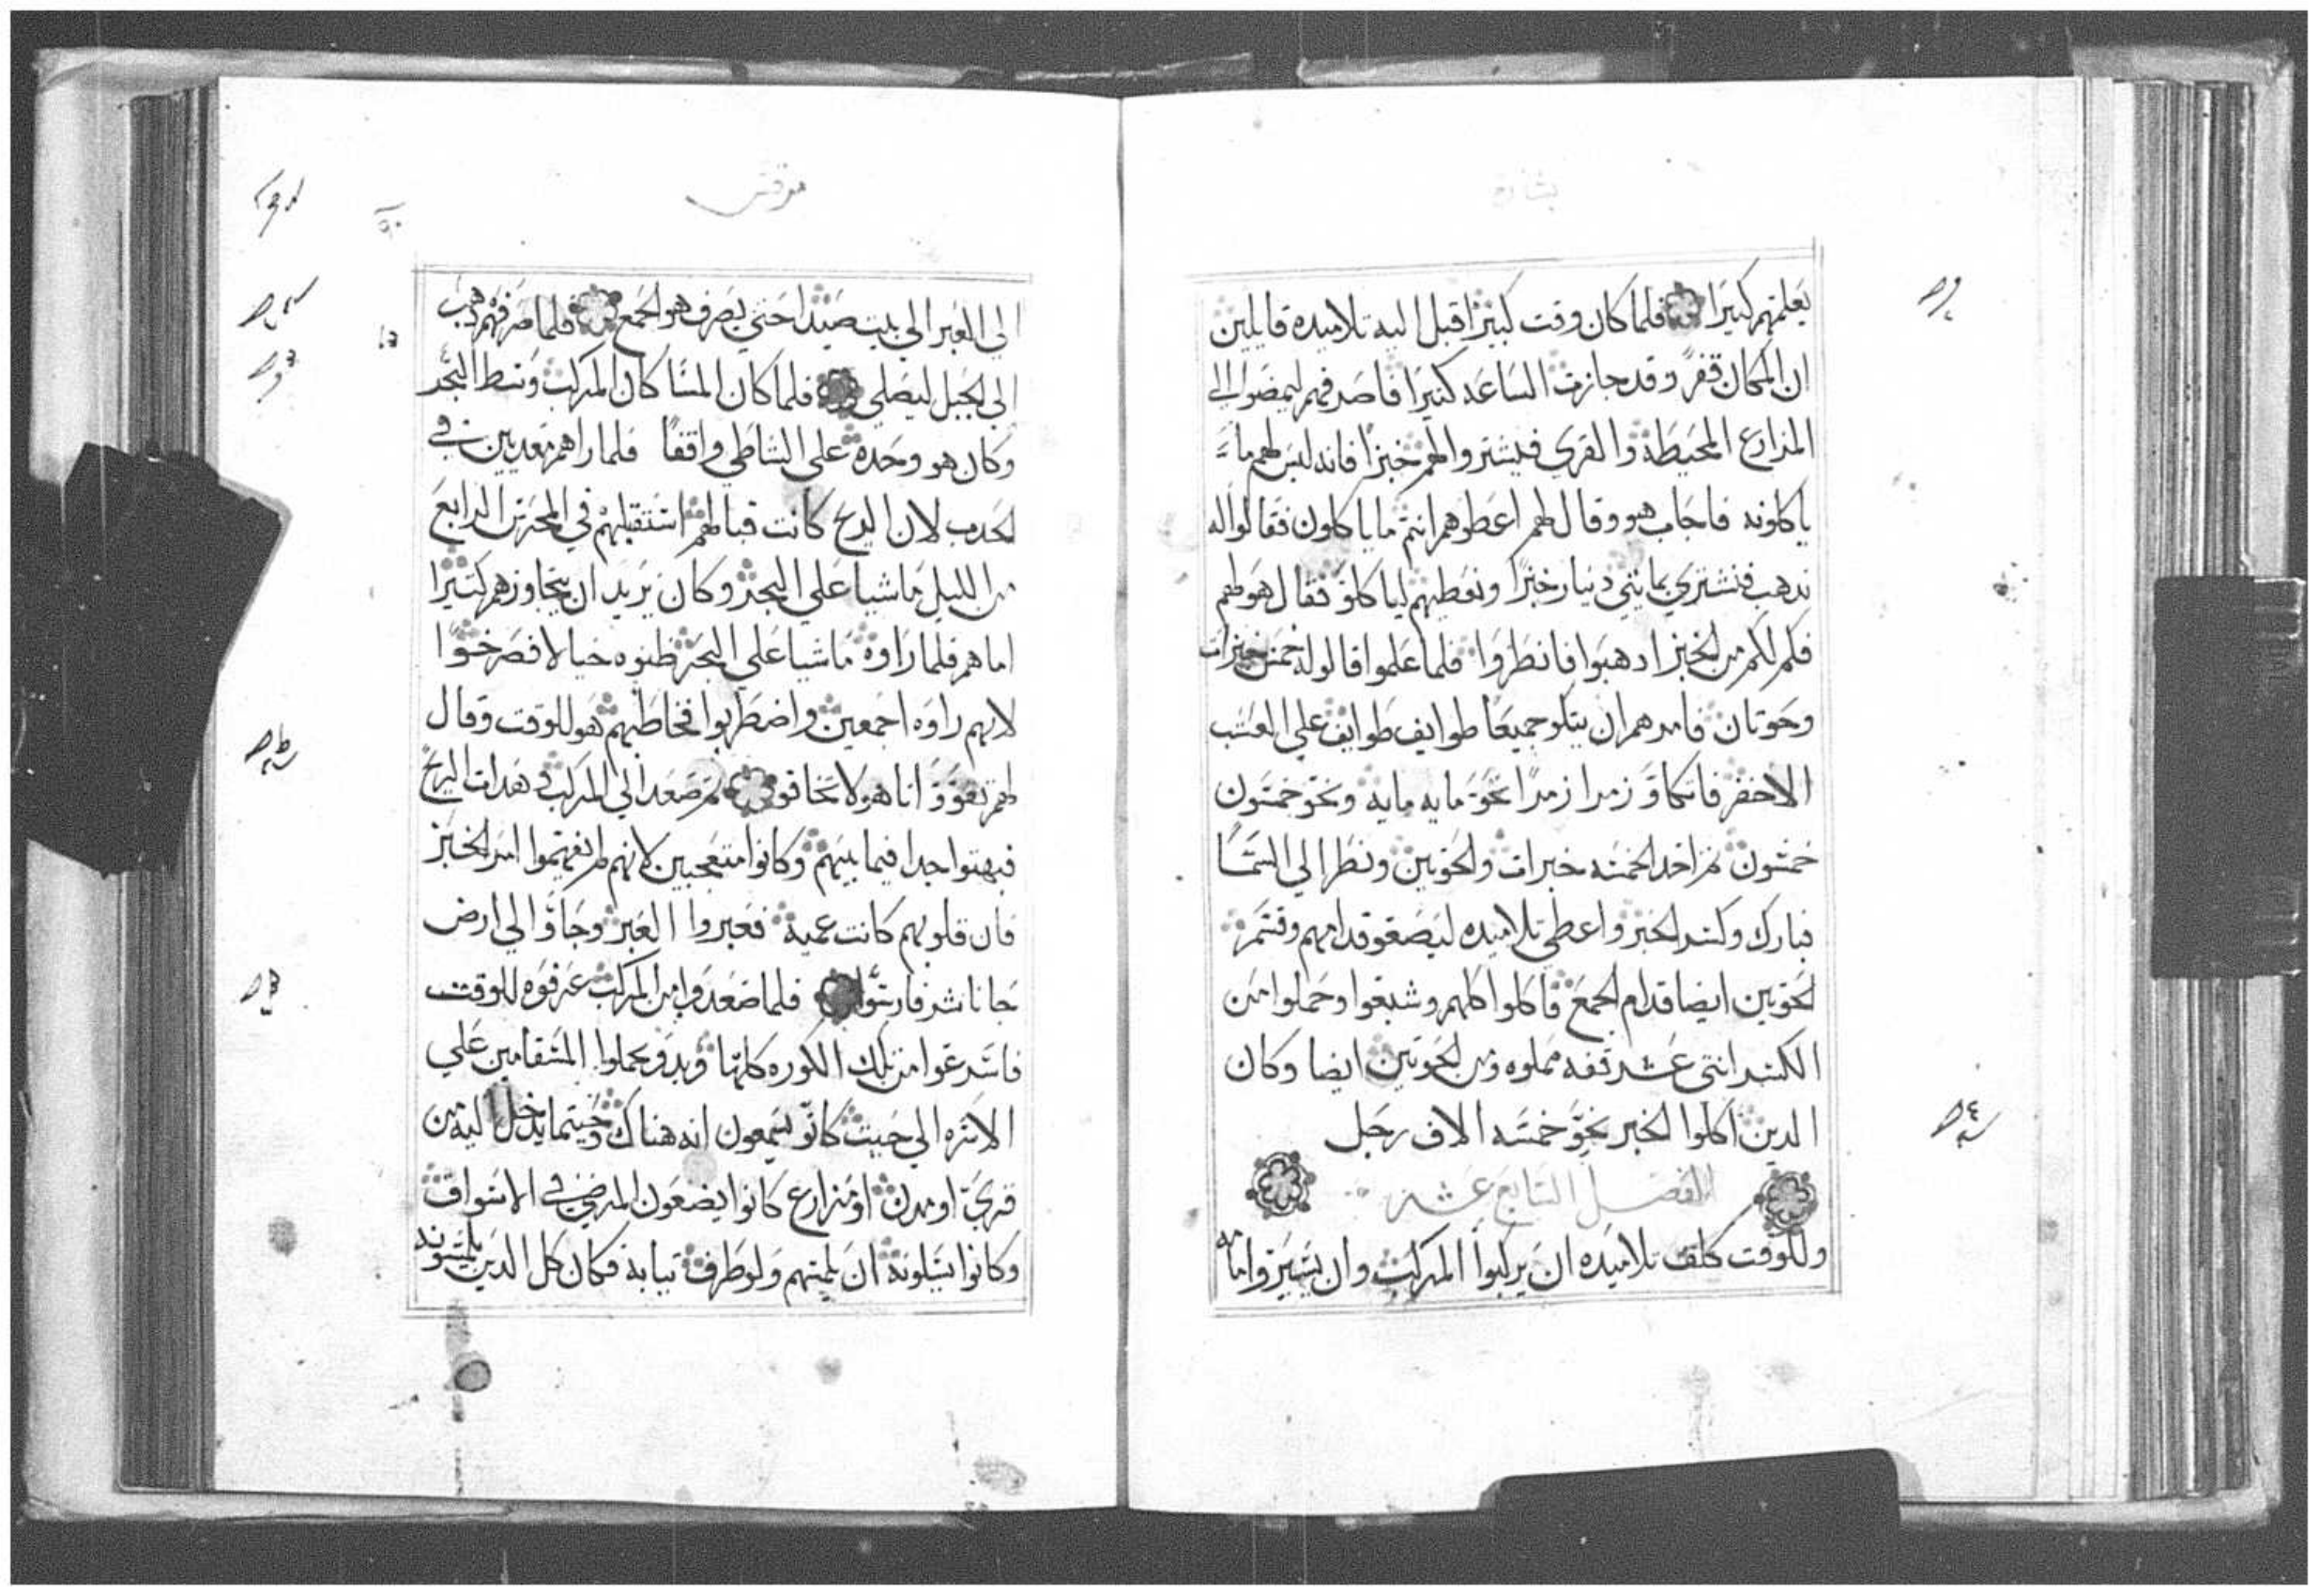 بشارة
يعلمهم كثيرا فلما كان وقت كبير اقبل اليه تلاميده قايلين
ان المكان قفر وقد جازت الساعه كثيرا فاصرفهم ليمضوا الي
المزارع المحيطة والقري فيشتروا لهم خبزا فانه ليس لهم ما
ياكلونه فاجاب هو وقال لهم اعطوهم انتم ما ياكلون فقالوا له
ندهب فنشتري بمايتي دينار خبزا ونعطيهم لياكلو فقال هو لهم
فكم لكم من الخبز ادهبوا فانظروا فلما علموا قالوا له خمس خبزات
وحوتان فامرهم ان يتكو جميعا طوايف طوايف علي العشب
الاخضر فاتكاو زمرا زمرا نحو مايه مايه ونحو خمسون
خمسون ثم اخد الخمسه خبزات والحوتين ونظر الي السما
فبارك وكسر الخبز واعطي تلاميده ليضعو قدامهم وقسم
الحوتين ايضا قدام الجمع فاكلوا كلهم وشبعوا وحملوا من
الكسر اثني عشر قفه مملوه ومن الحوتين ايضا وكان
الدين اكلوا الخبز نحو خمسه الاف رجل
الفصل السابع عشر
وللوقت كلف تلاميده ان يركبوا المركب وان يسيروا امامه
مرقس
الي العبر الي بيت صيدا حتي يصرف هو الجمع فلما صرفهم دهب
الي الجبل ليصلي فلما كان المسا كان المركب وسط البحر
وكان هو وحده علي الشاطي واقفا فلما راهم معديين في
الجدب لان الريح كانت قبالهم استقبلهم في المحرس الرابع
من الليل ماشيا علي البحر وكان يريد ان يتجاوزهم كثيرا
اما هم فلما راوه ماشيا علي البحر ظنوه خيالا فصرخوا
لانهم راوه اجمعين واضطربوا فخاطبهم هو للوقت وقال
لهم تقوو انا هو لا تخافو ثم صعد الي المركب وهدات الريح
فبهتوا جدا فيما بينهم وكانوا متعجبين لانهم لم يفهموا امر الخبز
فان قلوبهم كانت عمية فعبروا العبر وجاوا الي ارض
جاناشر فارسوا فلما صعدوا من المركب عرفوه للوقت
فاسرعوا من تلك الكوره كلها وبدو يحملوا السقامين علي
الاسره الي حيث كانو يسمعون انه هناك وحيتما يدخل اليه من
قري او مدن او مزارع كانوا يضعون المرضي في الاسواق
وكانوا يسلونه ان يلمسهم ولو طرف تيابه فكان كل الدين يلمسونه